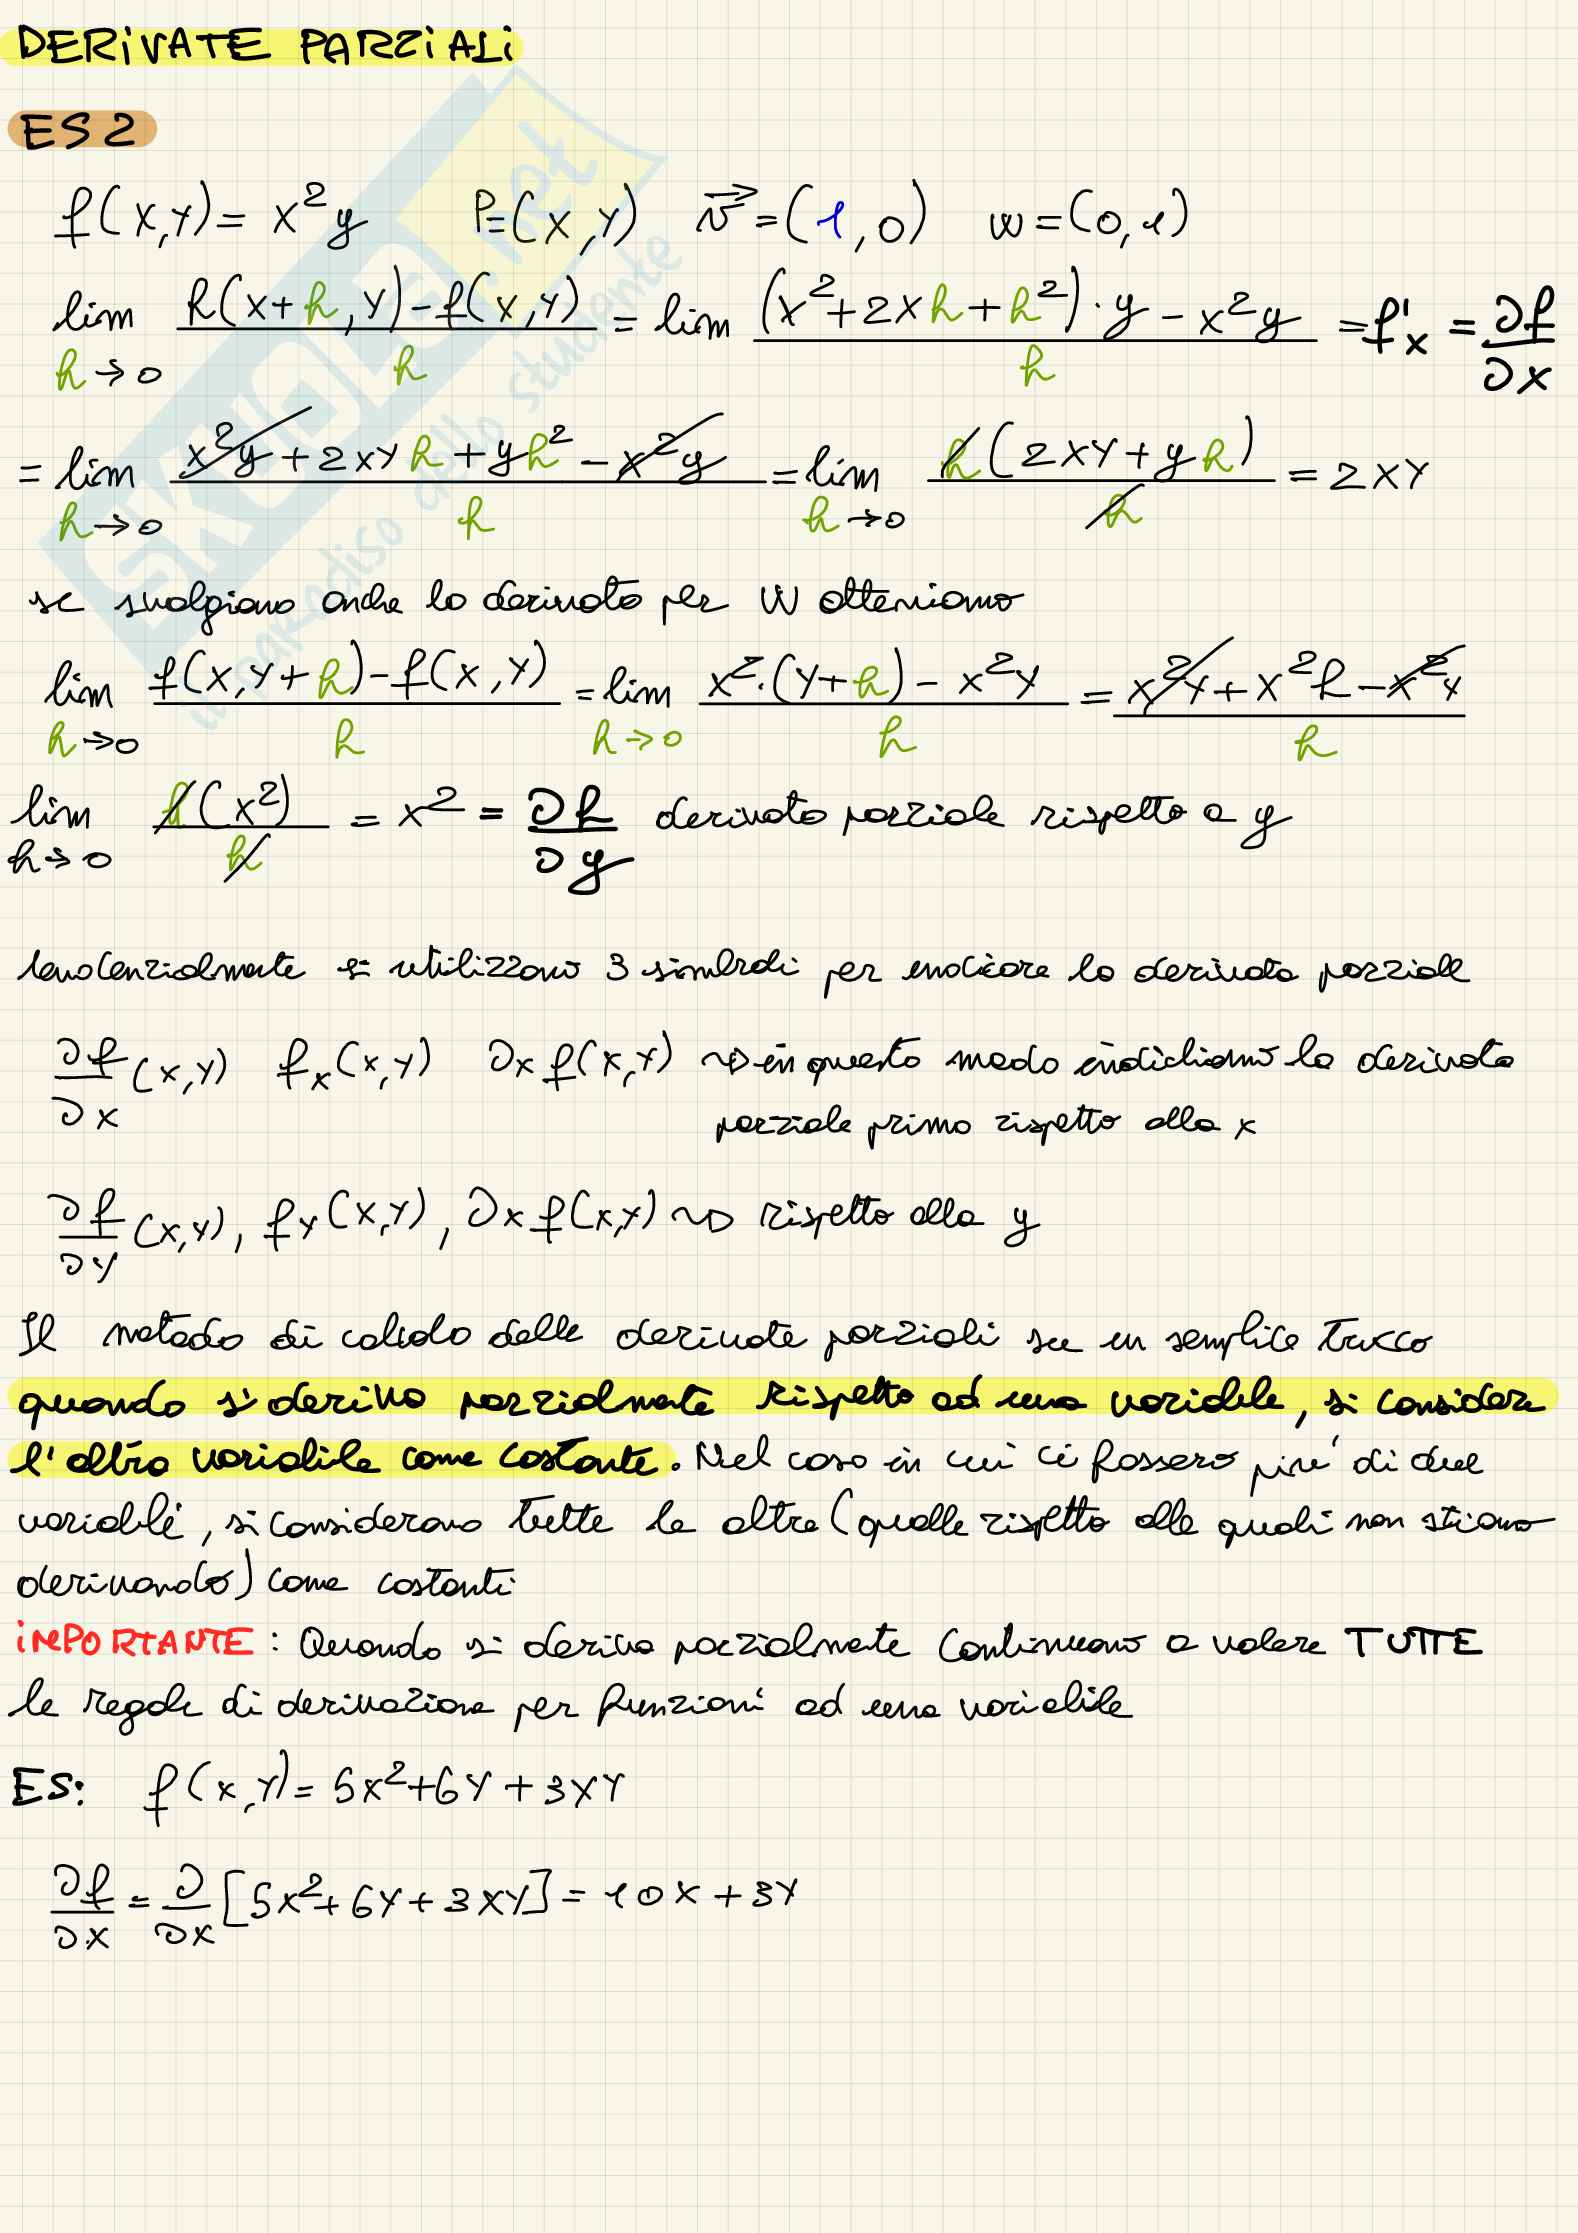 DERIVATE PARZIALI
ES 2
f(x,y) = x²y   P=(x,y)   v⃗=(1,0)   w=(0,1)
lim h→0 f(x+h,y)-f(x,y) / h = lim (x²+2xh+h²)·y - x²y / h = f'x = ∂f/∂x
= lim h→0 x²y+2xyh+yh²-x²y / h = lim h→0 h(2xy+yh) / h = 2xy
se svolgiamo anche la derivata per W otteniamo
lim h→0 f(x,y+h)-f(x,y) / h = lim h→0 x²·(y+h) - x²y / h = x²y+x²h-x²y / h
lim h→0 h(x²) / h = x² = ∂f/∂y derivata parziale rispetto a y
si utilizzano 3 simboli per indicare la derivata parziale
∂f/∂x (x,y)   fx(x,y)   ∂x f(x,y) ⇝ in questo modo indichiamo la derivata
parziale prima rispetto alla x
∂f/∂y (x,y), fy(x,y), ∂x f(x,y) ⇝ rispetto alla y
Il metodo di calcolo delle derivate parziali su un semplice trucco
quando si deriva parzialmente rispetto ad una variabile, si considera
l'altra variabile come costante. Nel caso in cui ci fossero più di due
variabili, si considerano tutte le altre (quelle rispetto alle quali non stiamo
derivando) come costanti
IMPORTANTE: Quando si deriva parzialmente continuano a valere TUTTE
le regole di derivazione per funzioni ad una variabile
ES: f(x,y) = 5x²+6y+3xy
∂f/∂x = ∂/∂x [5x²+6y+3xy] = 10x+3y
SKUOLA.net
il paradiso dello studente